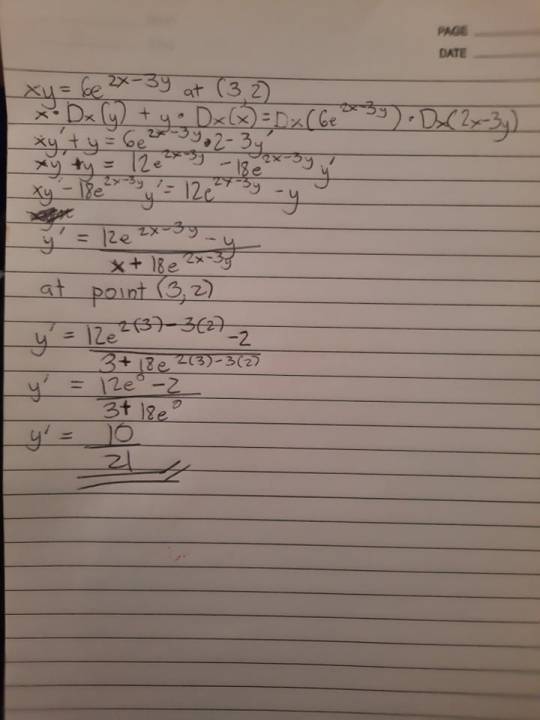 PAGE
DATE
xy = 6e^{2x-3y} at (3,2)
x · Dx(y) + y · Dx(x) = Dx(6e^{2x-3y}) · Dx(2x-3y)
xy' + y = 6e^{2x-3y} · 2 - 3y'
xy' + y = 12e^{2x-3y} - 18e^{2x-3y} y'
xy' - 18e^{2x-3y} y' = 12e^{2x-3y} - y
y' = 12e^{2x-3y} - y
x + 18e^{2x-3y}
at point (3,2)
y' = 12e^{2(3)-3(2)} - 2
3 + 18e^{2(3)-3(2)}
y' = 12e^0 - 2
3 + 18e^0
y' = 10
21